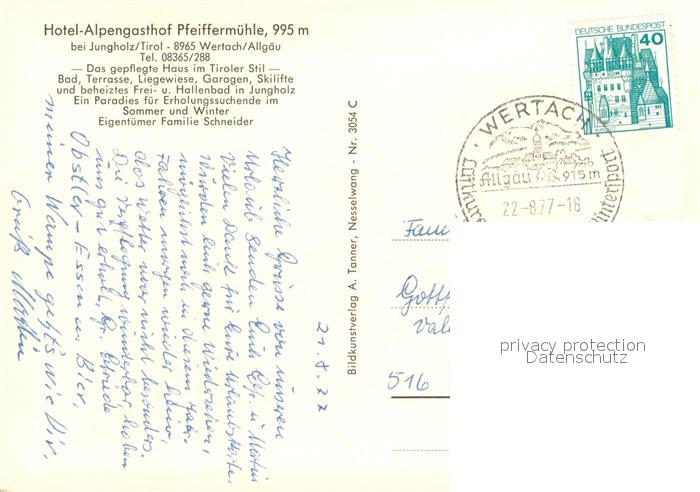 Hotel-Alpengasthof Pfeiffermühle, 995 m
bei Jungholz/Tirol - 8965 Wertach/Allgäu
Tel. 08365/288
— Das gepflegte Haus im Tiroler Stil —
Bad, Terrasse, Liegewiese, Garagen, Skilifte
und beheiztes Frei- u. Hallenbad in Jungholz
Ein Paradies für Erholungssuchende im
Sommer und Winter
Eigentümer Familie Schneider
21.8.77
Herzliche Grüße von unserem
Urlaub senden Euch u. Martin
Vielen Dank für Eure Urlaubskarte.
würden Euch gerne wiedersehen,
möglichst noch in diesem Jahr.
Fahren morgen wieder heim,
das Wetter war nicht besonders.
Die Verpflegung wunderbar, haben
uns gut erholt.
Obstler - Essen u. Bier,
meiner Wampe geht's wie Dir.
Gruß Martin
Bildkunstverlag A. Tanner, Nesselwang - Nr. 3054 C
DEUTSCHE BUNDESPOST
40
WERTACH
Allgäu 915 m
22.-8.77-18
Fam
Gottf
Val
516
privacy protection
Datenschutz